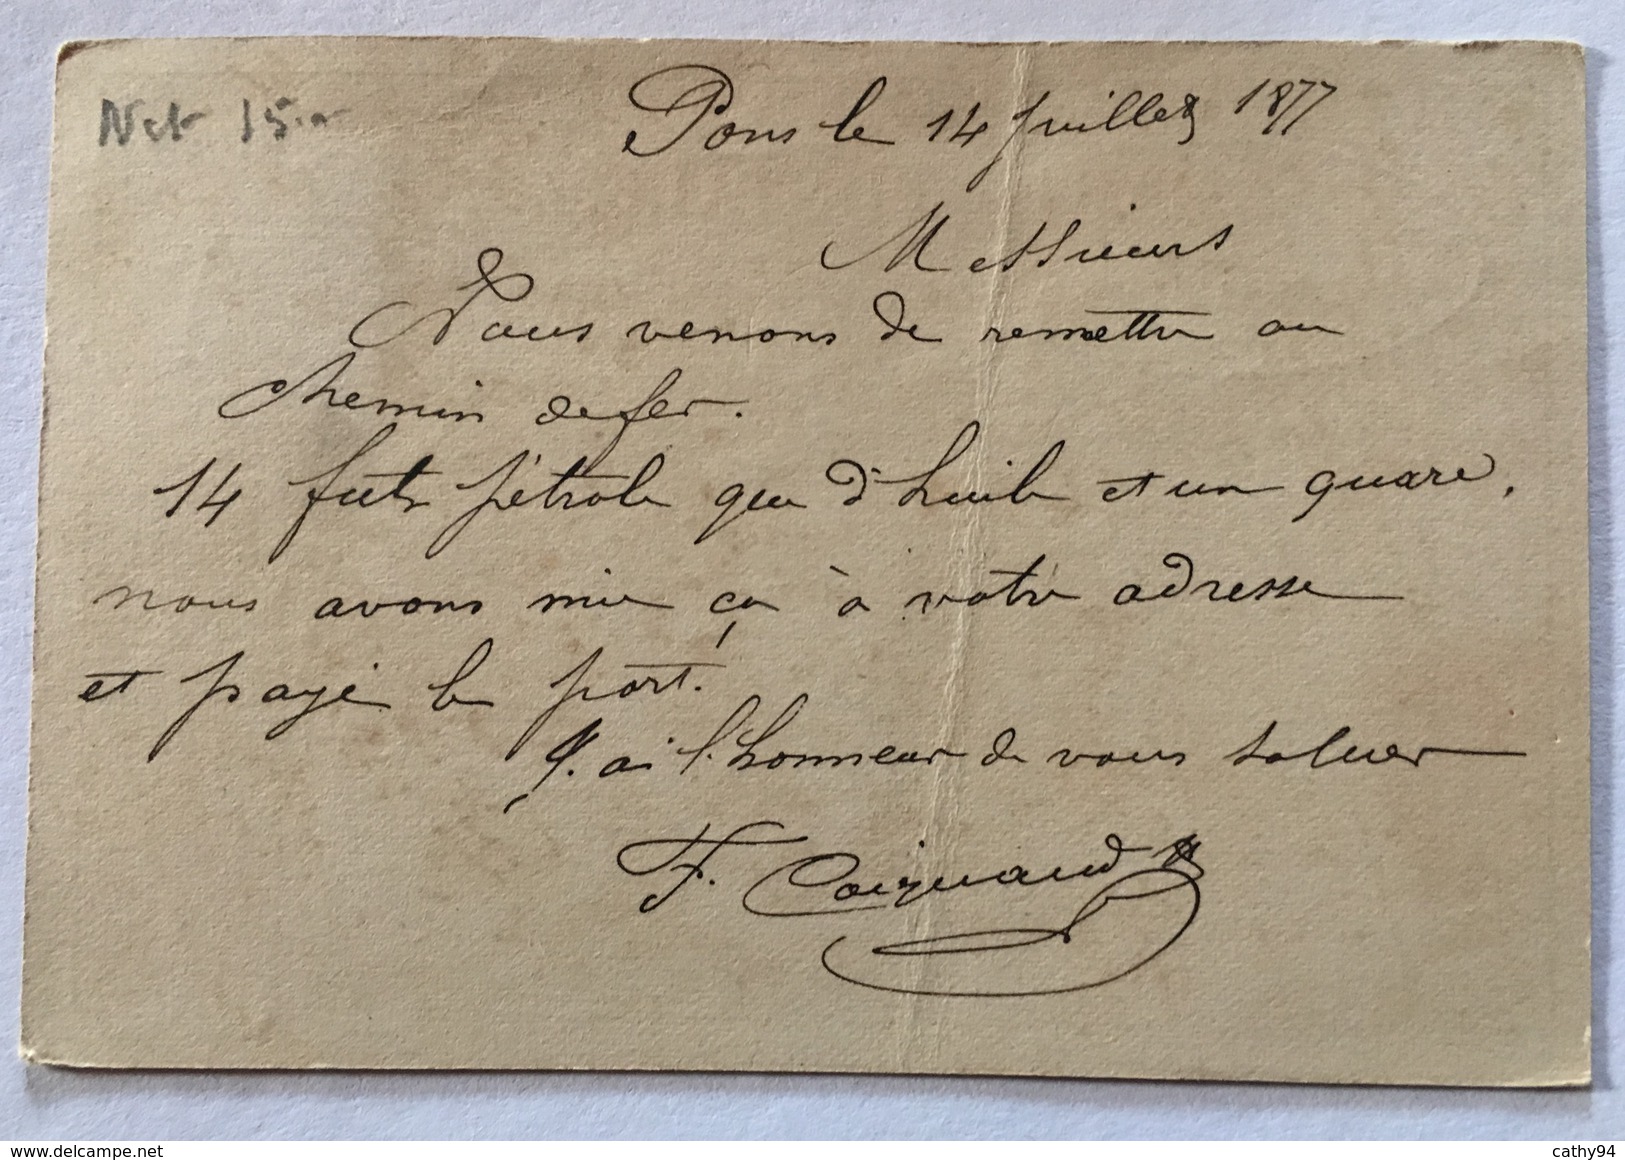 Net 15.-
Pons le 14 Juillet 1877
Messieurs
Nous venons de remettre au
chemin de fer.
14 futs pétrole que d'huile et un quare,
nous avons mie ça à votre adresse
et payé le port.
J. ai l'honneur de vous saluer
F. Coignaud
cathy94